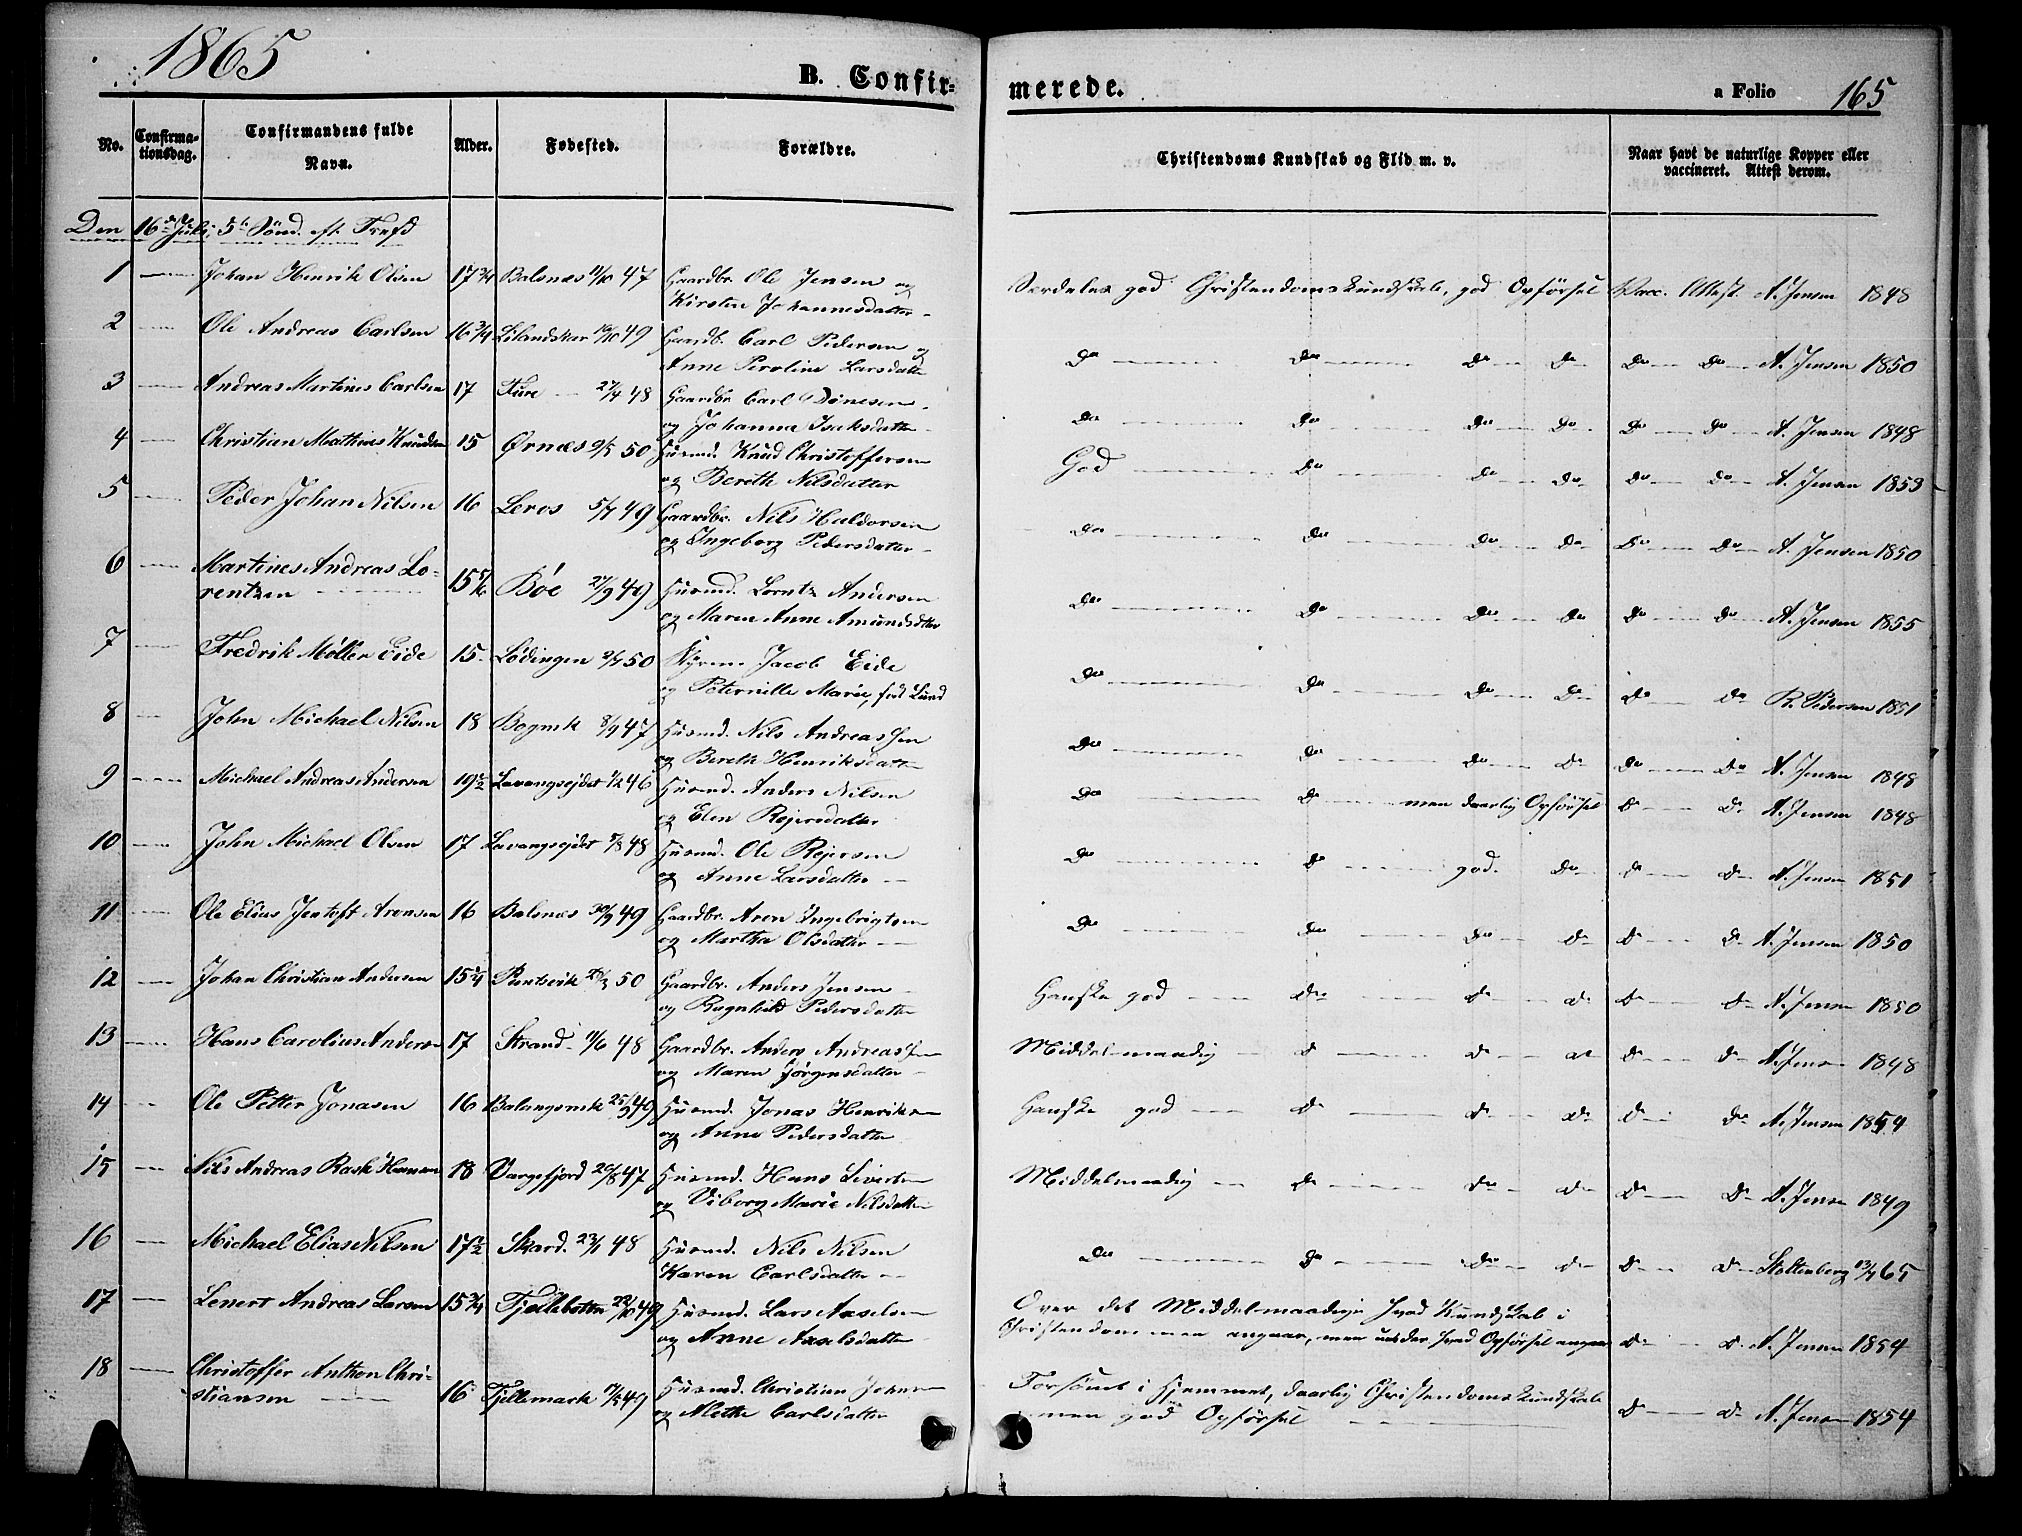 1865
B. Confirmerede.
a Folio 165
No.
Confirmationsdag.
Confirmandens fulde Navn.
Alder.
Fødested.
Forældre.
Christendoms Kundskab og Flid m. v.
Naar havt de naturlige Kopper eller vaccineret. Attest derom.
Den 16de Juli, 5te Sønd. eft. Trefd
1 Johan Henrik Olsen 17 3/4 Balsnæs 11/10 47 Gaardbr. Ole Jensen og
Kirsten Johannesdatter
Særdeles god Christendomskundskab, god Opførsel Vacc. Attest. A. Jensen 1848
2 Ole Andreas Carlsen 16 3/4 49 Gaardb. Carl Pedersen og
Anne Peroline Larsdatter
Do Do Do Do Do Do A. Jensen 1850
3 Andreas Martines Carlsen 17 Fure 27/4 48 Gaardbr. Carl
og Johanna Isaksdatter
Do Do Do Do Do Do A. Jensen 1848
4 Christian Mathias Knudsen 15 Ørnæs 50 Husmd. Knud Christoffersen
og Bereth Nilsdatter
God Do Do Do Do Do A. Jensen 1853
5 Peder Johan Nilsen 16 Leros 5/7 49 Gaardbr. Nils Haldorsen
og Ingeborg Pedersdatter
Do Do Do Do Do Do A. Jensen 1850
6 Martines Andreas Lorentzen 15 5/6 Bøe 27/9 49 Husmd. Lorntz Andersen
og Maren Anne Amundsdtter
Do Do Do Do Do Do A. Jensen 1855
7 Fredrik Møller Eide 15 Lødingen 2/7 50 Jacob Eide
og Peternille Marie, fød Lund
Do Do Do Do Do Do R. Pedersen 1851
8 John Michael Nilsen 18 Bognvik 8/9 47 Husmd. Nils Andreassen
og Bereth Henriksdatter
Do Do Do Do Do Do A. Jensen 1848
9 Michael Andreas Andersen 19 1/2 Lavangsejdet 46 Husmd. Anders Nilsen
og Elen Rejersdatter
Do Do men daarlig Opførsel Do Do A. Jensen 1848
10 John Michael Olsen 17 Lavangsejdet 5/8 48 Husmd. Ole Rejersen
og Anne Larsdatter
Do Do god. Do Do Do A. Jensen 1851
11 Ole Elias Jentoft Aronsen 16 Balsnæs 30/7 49 Gaardbr. Aron Ingebrigtsen
og Martha Olsdatter
Do Do Do Do Do Do A. Jensen 1850
12 Johan Christian Andersen 15 1/4 50 Gaardbr. Anders Jensen
og Ragnhild Pedersdatter
Ganske god Do Do Do Do Do A. Jensen 1850
13 Hans Carolius Andersen 17 Strand 11/6 48 Gaardbr. Anders Andreassen
og Maren Jørgensdatter
Middelmaadig Do Do Do Do Do A. Jensen 1848
14 Ole Petter Jonasen 16 Balangsvik 25/9 49 Husmd. Jonas Henriksen
og Anne Pedersdatter
Ganske god Do Do Do Do Do A. Jensen 1854
15 Nils Andreas Rask Hansen 18 Vargefjord 20/8 47 Husmd. Hans Sivertsen
og Viborg Marie Nilsdatter
Middelmaadig Do Do Do Do Do A. Jensen 1849
16 Michael Elias Nilsen 17 1/2 Skard. 23/1 48 Husmd. Nils Nilsen
Karen Carlsdatter
Do Do Do Do Do Do Stoltenberg 65
17 Lenert Andreas Larsen 15 3/4 Fjellebotten 22/10 49 Husmd. Lars Axelsen
og Anne Axelsdatter
Over det Middelmaadige hvad Kundskab i
Christendommen angaar, men under hvad Opførsel angaar Do Do A. Jensen 1854
18 Christoffer Anthon Christiansen 16 Fjellemark 49 Husmd. Christian Johnsen
og Alethe Carlsdatter
Forsømt i Hjemmet, daarlig Christendomskundskab
men god Opførsel Do Do A. Jensen 1854